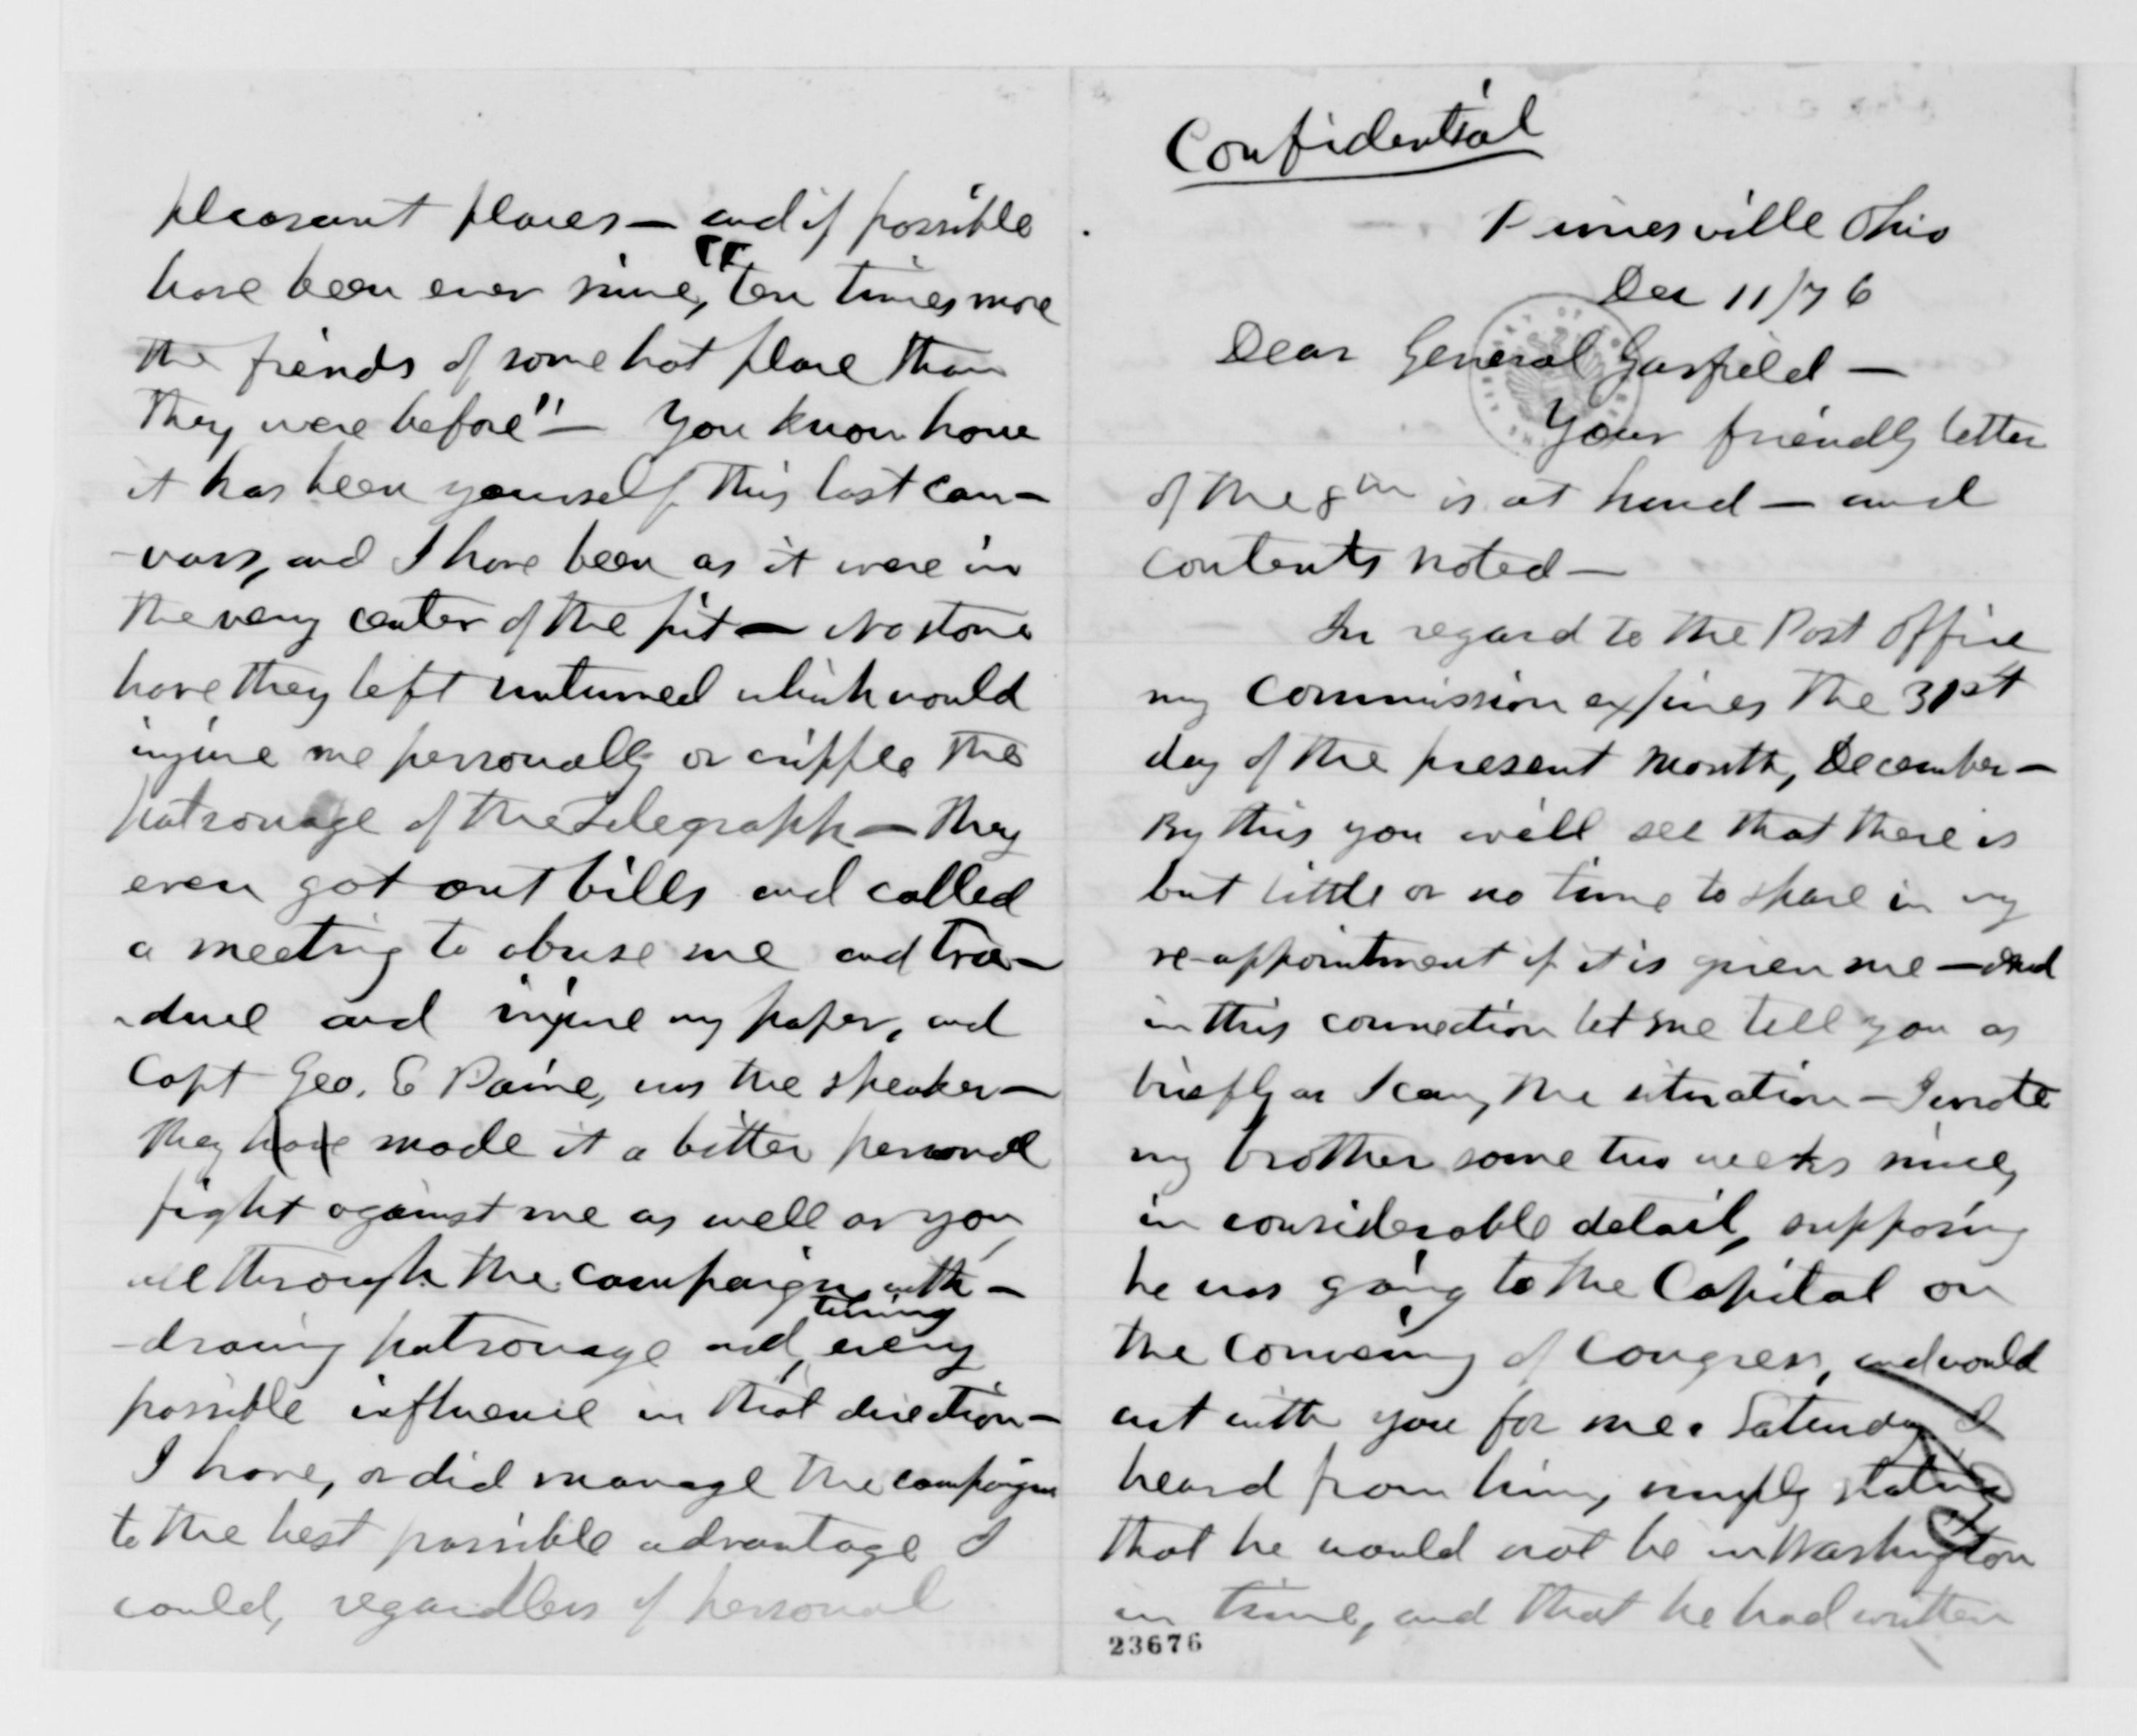 Confidential
Painesville Ohio
Dec 11/76
Dear General Garfield —
Your friendly letter
of the 8th is at hand — and
contents noted —
In regard to the Post Office
my commission expires the 31st
day of the present month, December —
By this you will see that there is
but little or no time to spare in my
re-appointment if it is given me — and
in this connection let me tell you as
briefly as I can, the situation — I wrote
my brother some two weeks since,
in considerable detail, supposing
he was going to the Capital on
the convening of Congress, and would
act with you for me. Saturday I
heard from him, simply stating
that he would not be in Washington
in time, and that he had written
23676
pleasant places — and if possible
have been ever since, "ten times more
the friends of some hot place than
they were before" — You know how
it has been yourself this last can-
-vass, and I have been as it were in
the very center of the pit — No stone
have they left unturned which would
injure me personally or cripple the
patronage of the Telegraph — They
even got out bills and called
a meeting to abuse me and tra-
-duce and injure my paper, and
Capt Geo. E Paine, was the speaker —
They have made it a bitter personal
fight against me as well as you,
all through the campaign with-
-drawing patronage and, turning every
possible influence in that direction —
I have, or did manage the campaign
to the best possible advantage I
could, regardless of personal